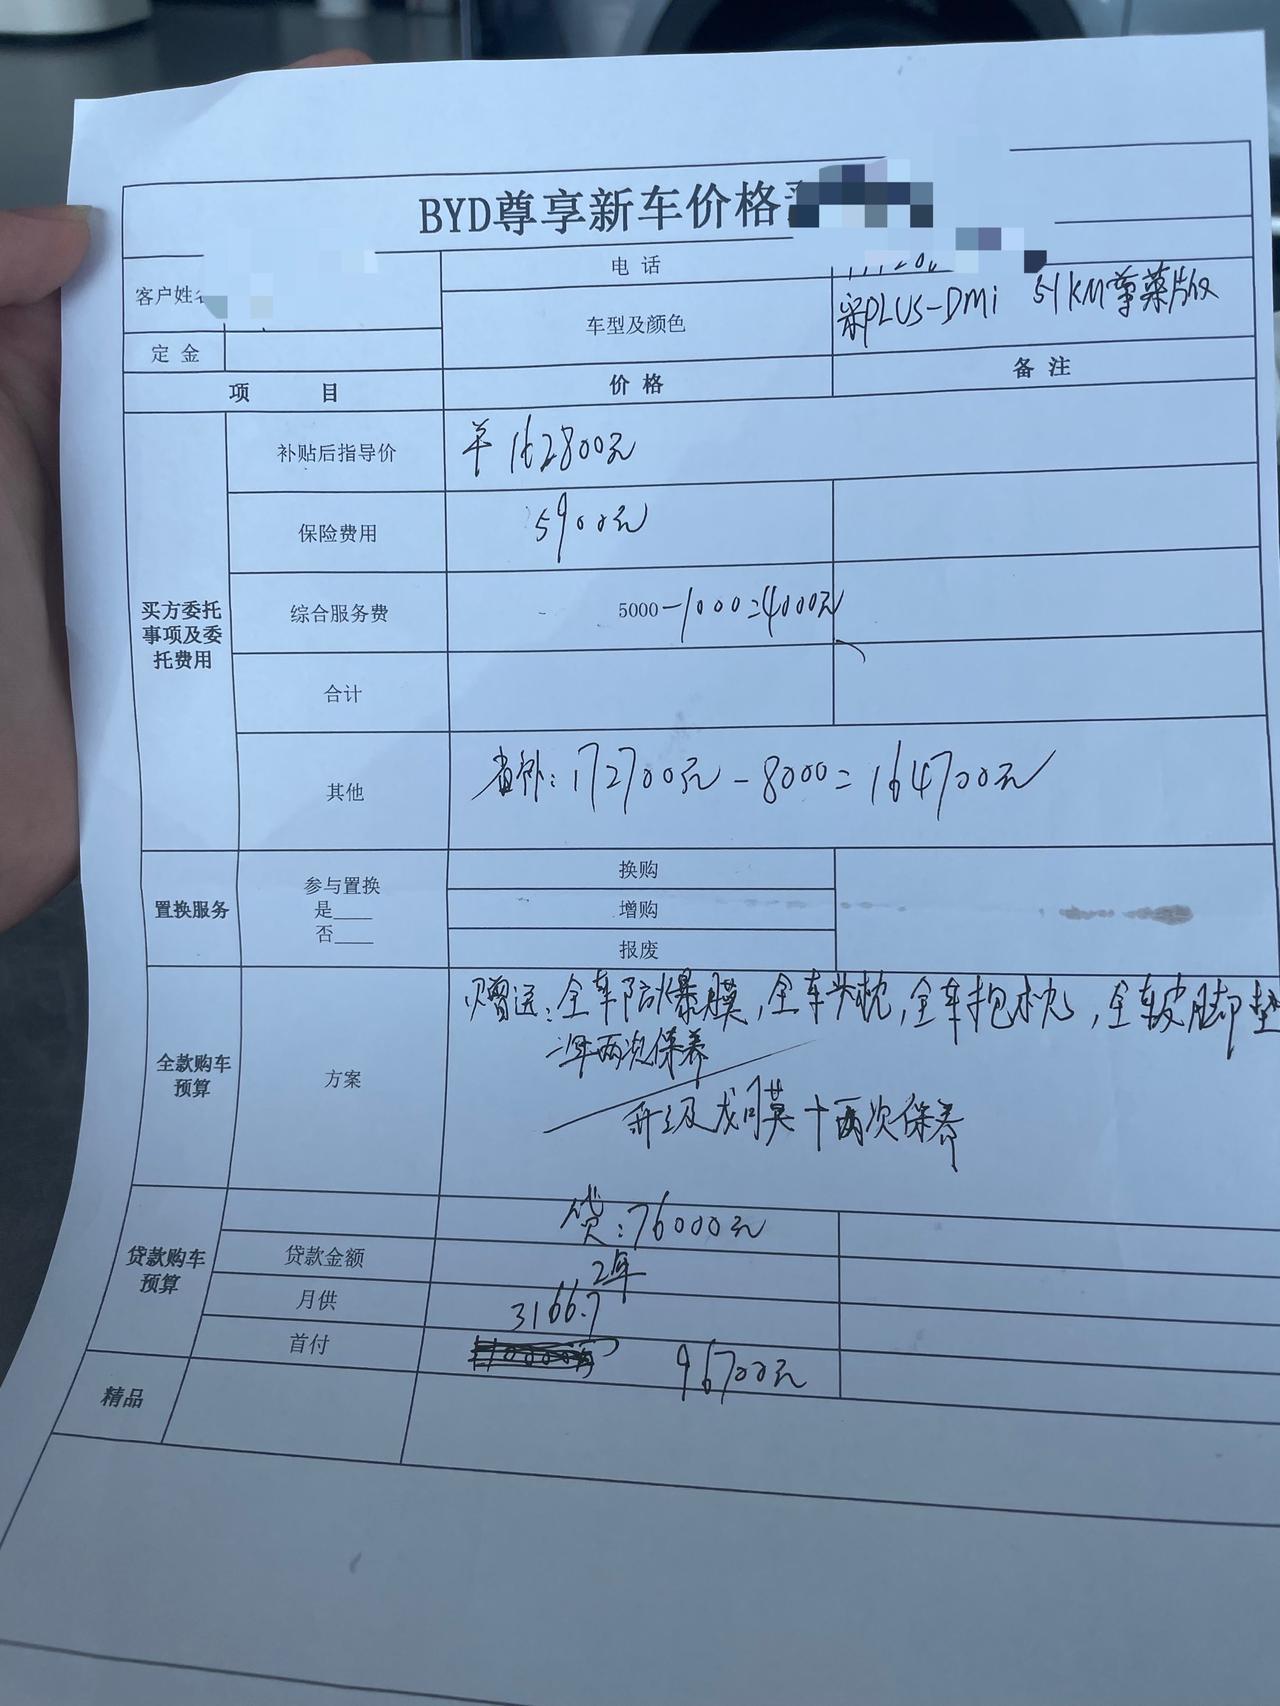 BYD尊享新车价格
客户姓名
电 话
车型及颜色
宋PLUS-DMi 51KM尊荣版
定 金
项 目
价 格
备 注
买方委托事项及委托费用
补贴后指导价
¥162800元
保险费用
5900元
综合服务费
5000-1000=4000元
合计
其他
省补:172700元-8000=164700元
置换服务
参与置换
是____
否____
换购
增购
报废
全款购车预算
方案
赠送:全车防爆膜,全车头枕,全车抱枕,全车皮脚垫
二年两次保养
升级龙膜+两次保养
贷款购车预算
贷:76000元
贷款金额
2年
月供
3166.7
首付
96700元
精品